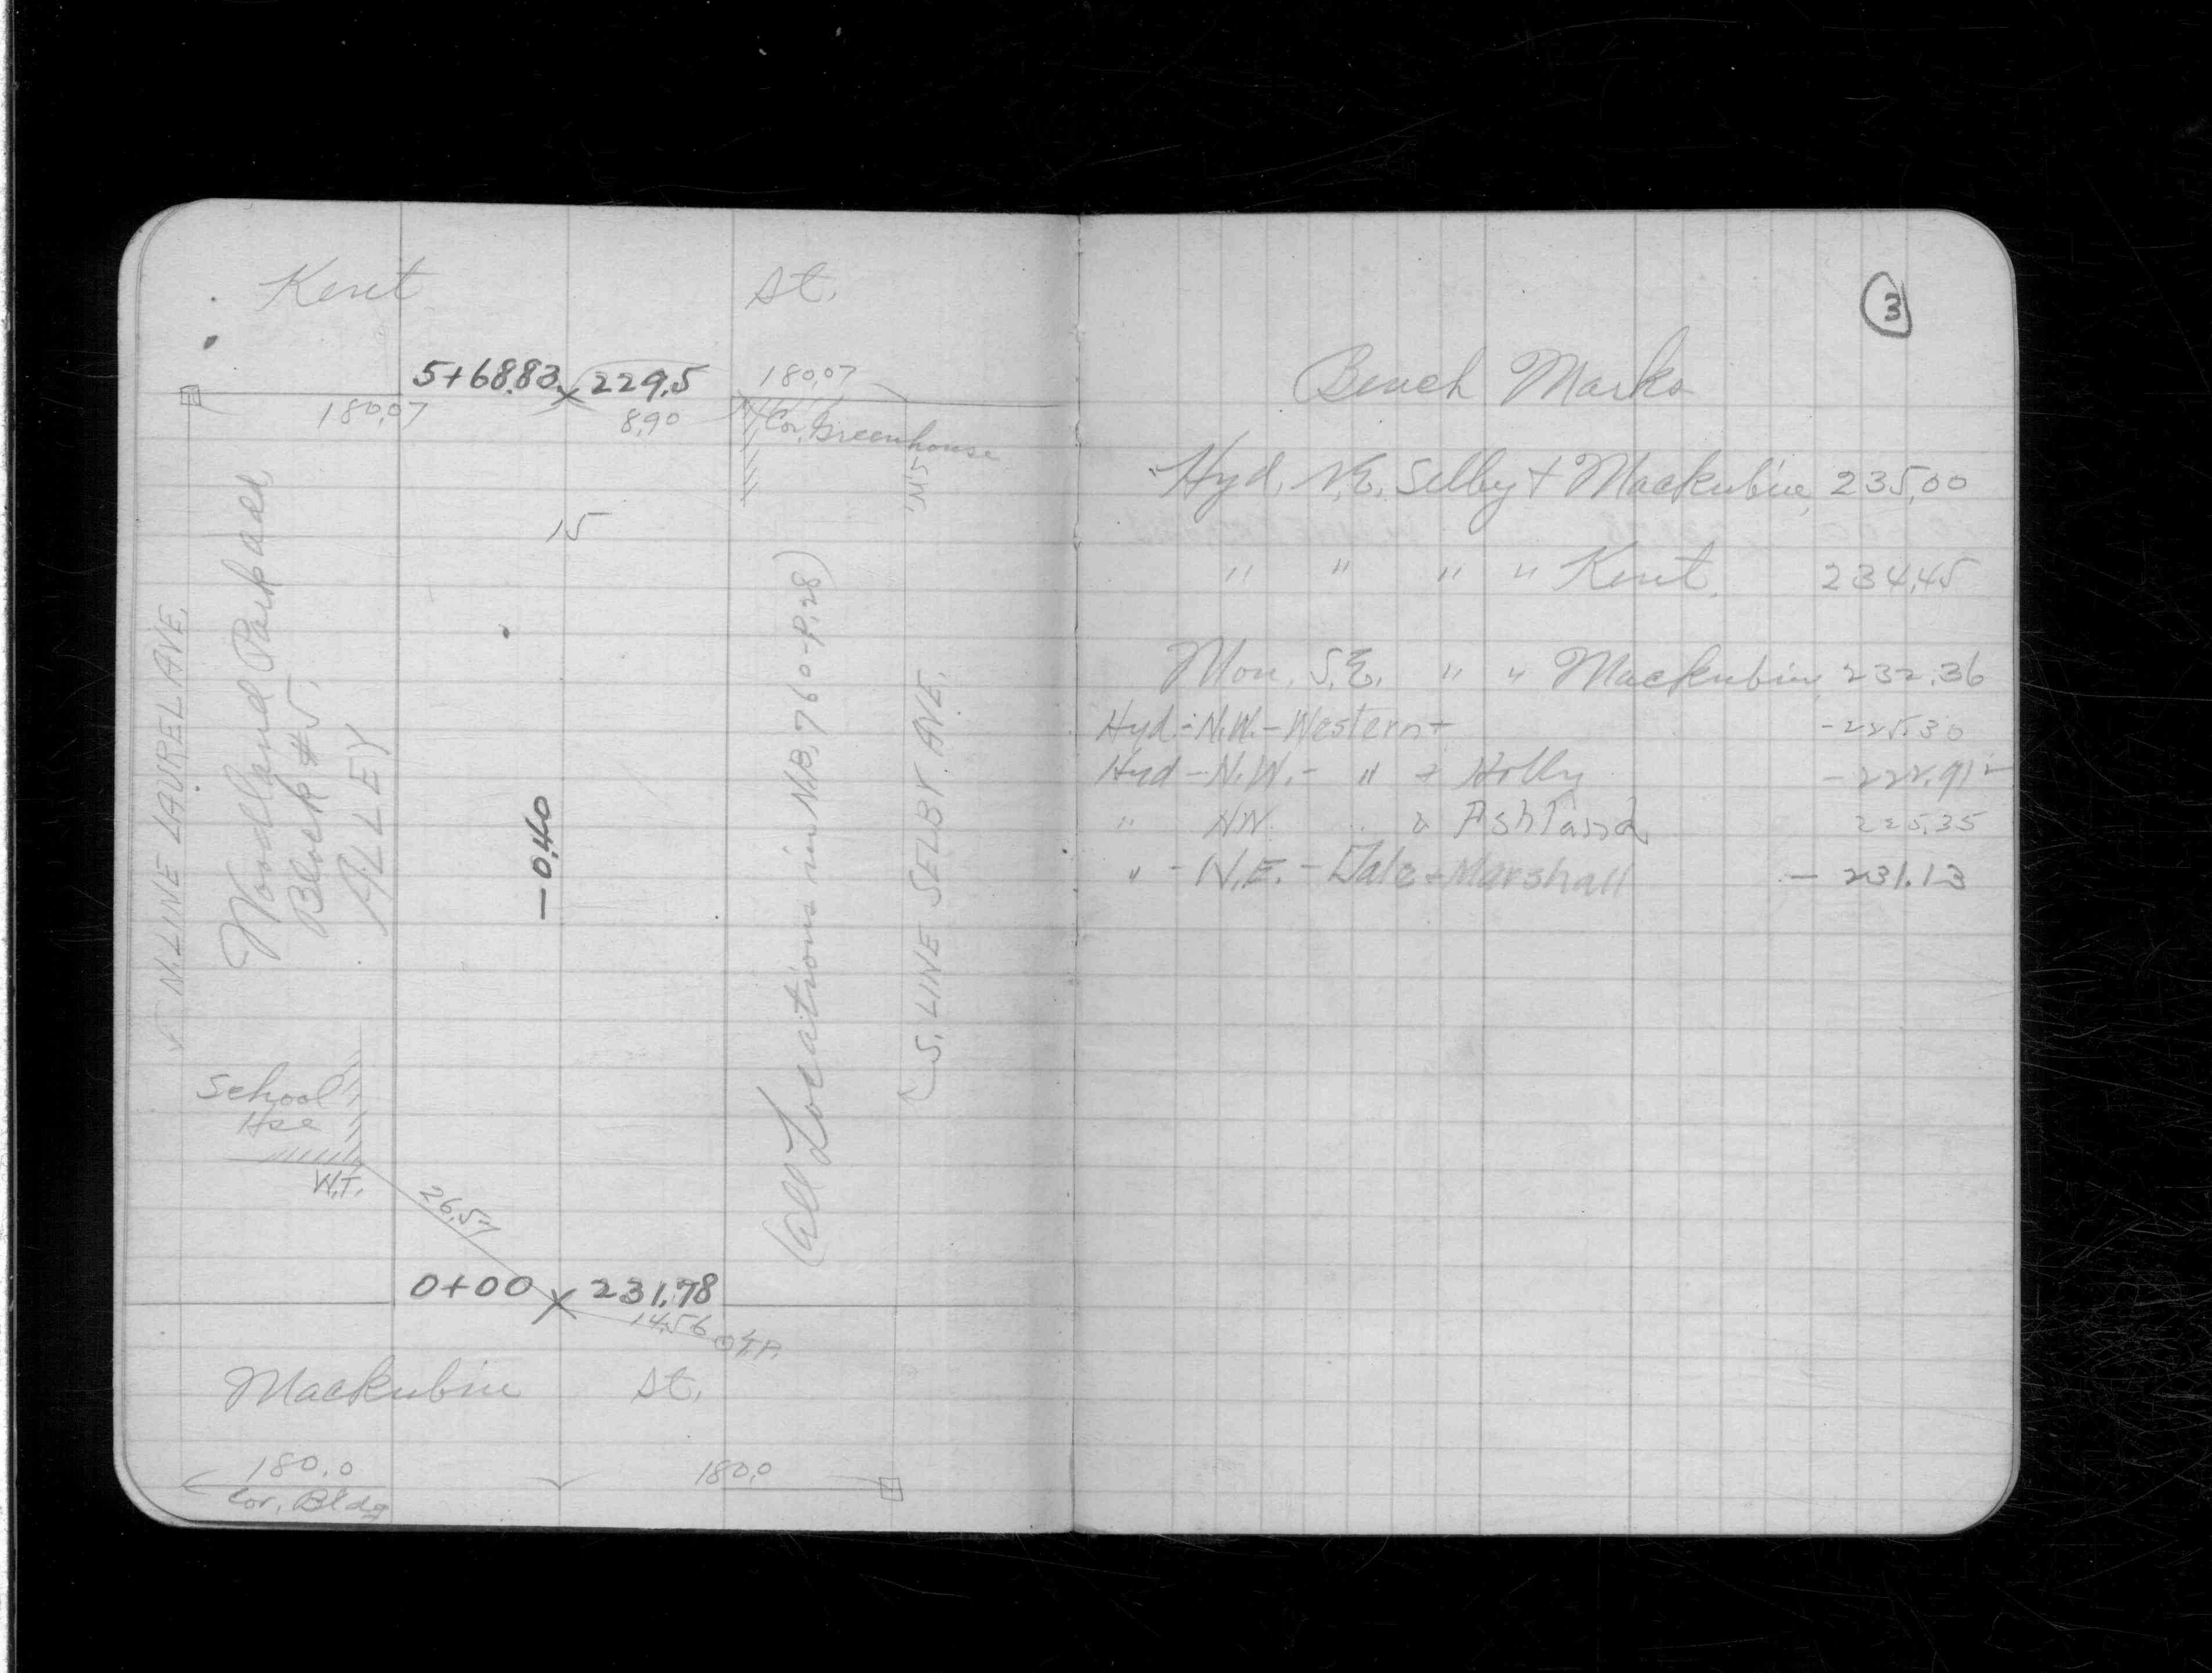 Kent St.
5+68.83 x 229.5
180.07
180.07
8.90
Cor. Greenhouse
N.15
15
N. LINE LAUREL AVE.
Woodland Park add.
Block #5,
ALLEY
—0.40
(all Locations in N.B. 760-P.28)
S. LINE SELBY AVE.
School
Hse
W.T.
26.57
0+00 x 231.78
14.56
T.P.
Mackubin St.
180.0
180.0
Cor. Bldg
3
Bench Marks
Hyd. N.E. Selby + Mackubin, 235.00
" " " " Kent. 234.45
Mon. S.E. " " Mackubin, 232.36
Hyd - N.W. - Western + - 225.30
Hyd - N.W. - " + Holly - 222.91
" NW. & Ashland 225.35
" - N.E. - Dale + Marshall - 231.13